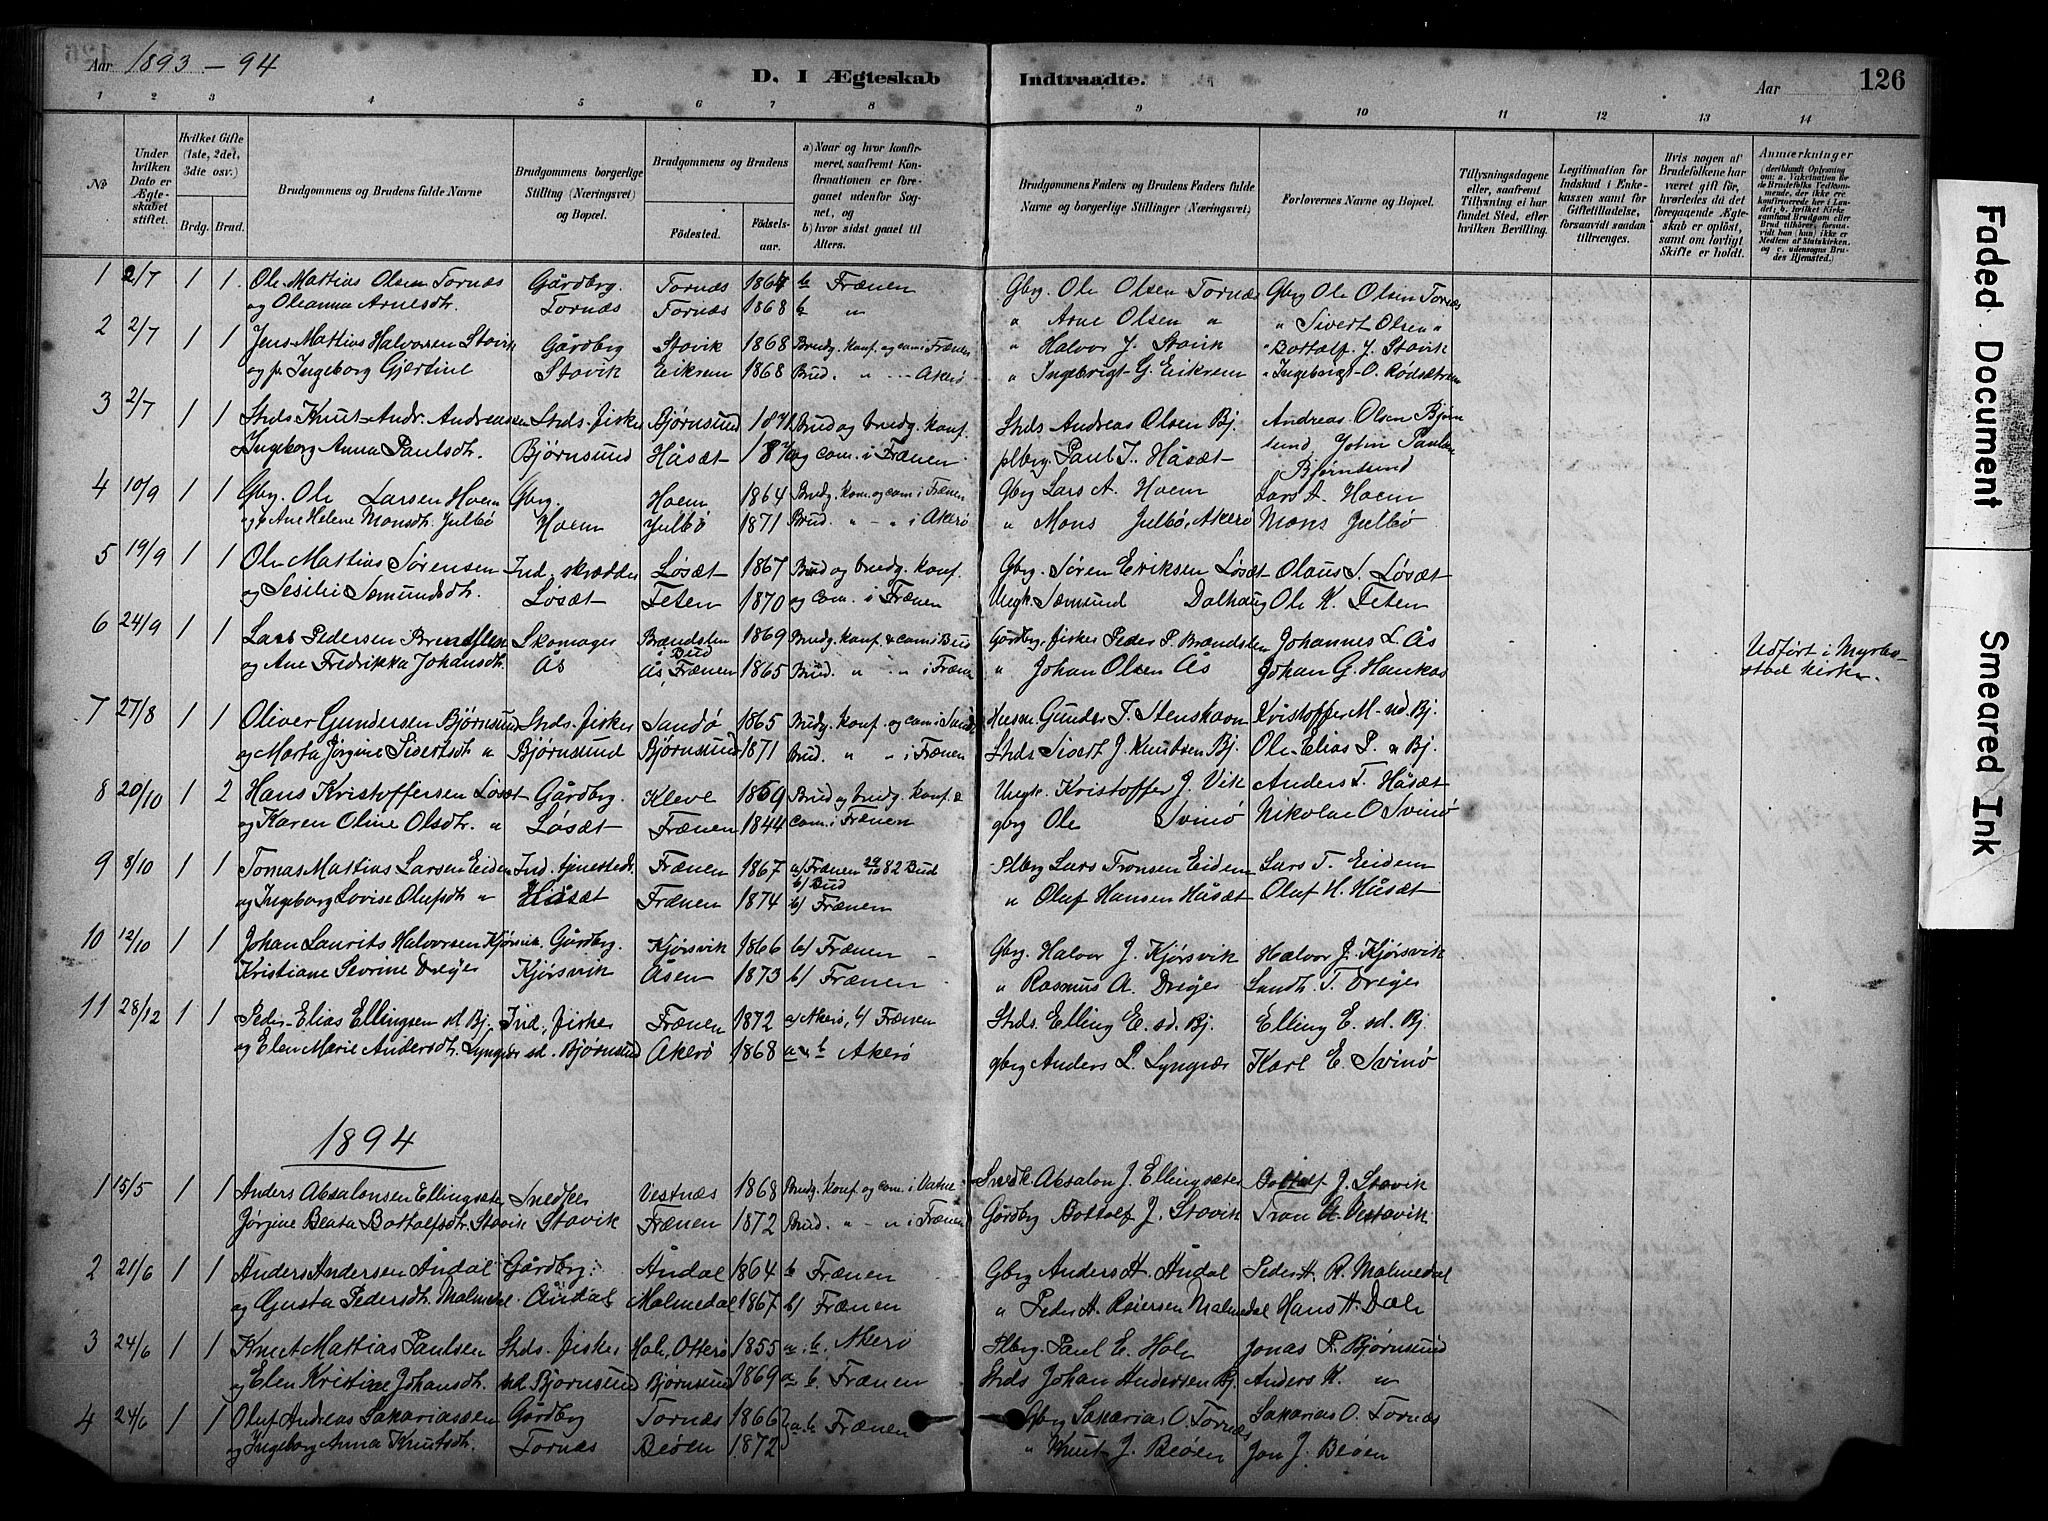 Aar 1893 – 94
D. I Ægteskab Indtraadte.
Aar
126
1 2 3 4 5 6 7 8 9 10 11 12 13 14
No
Under hvilken Dato er Ægteskabet stiftet.
Hvilket Gifte (1ste, 2det, 3dte osv.)
Brdg. Brud.
Brudgommens og Brudens fulde Navne
Brudgommens borgerlige Stilling (Næringsvei) og Bopæl.
Brudgommens og Brudens
Fødested. Fødselsaar.
a) Naar og hvor konfirmeret, saafremt Konfirmationen er foregaaet udenfor Sognet, og
b) hvor sidst gaaet til Alters.
Brudgommens Faders og Brudens Faders fulde Navne og borgerlige Stillinger (Næringsvei)
Forlovernes Navne og Bopæl.
Tillysningsdagene eller, saafremt Tillysning ei har fundet Sted, efter hvilken Bevilling.
Legitimation for Indskud i Enkekassen samt for Giftetilladelse, forsaavidt saadan tiltrænges.
Hvis nogen af Brudefolkene har været gift før, hvorledes da det foregaaende Ægteskab er opløst, samt om lovligt Skifte er holdt.
Anmærkninger
1 2/7 1 1 Ole Mattias Olsen Tornæs Gårdbg. Tornæs 1867 b Frænen Gbrg. Ole Olsen Tornæs Gbrg Ole Olsen Tornæs
og Oleanna Arnesdh. Tornæs Tornæs 1868 b " " Arne Olsen " " Sivert Olsen "
2 2/7 1 1 Jens Mattias Halvorsen Stavik Gårdbg Stavik 1868 Brudg. konf. og com. i Frænen " Halvor J. Stavik " Bottolf J. Stavik
og Ingeborg Gjertine Stavik Eikrem 1868 Brud. " - Akerø " Ingebrigt G. Eikrem " Ingebrigt O. Rødsætrem
3 2/7 1 1 Strds Knut Andr. Andreassen Strds. fisker Bjørnsund Brud og brudg. konf. Strds Andreas Olsen Bj. Andreas Olsen Bjørnsund, John Paulsen
Ingeborg Anna Paulsdh. Bjørnsund Håsæt og com. i Frænen plbrg. Paul T. Håsæt Bjørnsund
4 10/9 1 1 Gbrg. Ole Larsen Hoem Gbrg. Hoem 1864 Brudg. konf. og com. i Frænen Gbrg Lars A. Hoem Lars A. Hoem
Ane Helene Monsdh. Julbø Hoem Julbø 1871 Brud. " - " i Akerø " Mons Julbø, Akerø Mons Julbø
5 19/9 1 1 Ole Mattias Sørensen Ind. skrædder Løsæt 1867 Brud og brudg. konf. Gbrg. Søren Eriksen Løsæt Olaus S. Løsæt
og Sesilie Semundsdh. Løsæt Teten 1870 og com. i Frænen Ungk. Semund Dalhaug Ole K. Teten
6 24/9 1 1 Lars Pedersen Brendslen Skomager Brændslen i Bud 1869 Brudg. konf & com. i Bud Gårdbg. fisker Peder P. Brændslen Johannes L. Ås Udført i Myrbostad kirke.
og Ane Fredrikka Johansdh. Ås Ås, Frænen 1865 Brud. " - " i Frænen " Johan Olsen Ås Johan G. Haukås
7 27/8 1 1 Oliver Gundersen Bjørnsund Strds. fisker Sandø 1865 Brudg. konf. og com. i Sandø Husm. Gunder T. Stenshavn Kristoffer M. nd. Bj.
og Marta Jørgine Sivertsdh. " Bjørnsund Bjørnsund 1871 Brud. " " i Frænen Strds Sivert J. Knutsen Bj. Ole Elias P. " Bj.
8 20/10 1 2 Hans Kristoffersen Løsæt Gårdbg. Kleve 1869 Brud og brudg. konf. & Ungk. Kristoffer J. Vik Anders T. Håsæt
og Karen Oline Olsdh. " Løsæt Frænen 1844 com. i Frænen gbrg Ole Svinø Nikolai O Svinø
9 8/10 1 1 Tomas Mattias Larsen Eidem Ind. tjenestedr. Frænen 1867 a) Frænen 29/10 82 Bud b) Bud Plbrg Lars Tronsen Eidem Lars T. Eidem
og Ingeborg Lovise Olufsdh " Håsæt Frænen 1874 b) Frænen " Oluf Hansen Håsæt Oluf H. Håsæt
10 12/10 1 1 Johan Laurits Halvorsen Kjørsvik Gårdbg. Kjørsvik 1866 b) Frænen Gbrg. Halvor J. Kjørsvik Halvor J. Kjørsvik
Kristiane Sevrine Drejer Kjørsvik Åsen 1873 b) Frænen " Rasmus A. Drejer Sandh. T. Drejer
11 28/12 1 1 Peder Elias Ellingsen sd Bj. Ind, fisker Frænen 1872 a) Akerø, b) Frænen Strds. Elling E. sd. Bj. Elling E. sd. Bj
og Elen Marie Andersdh. Lyngvær sd. Bjørnsund Akerø 1868 a & b Akerø gbrg Anders L. Lyngvær Karl E. Svinø
1894
1 15/5 1 1 Anders Absalonsen Ellingsæter Snedker Vestnæs 1868 Brudg. konf. og com. i Vatne Snedk. Absalon J. Ellingsæter Bottolf J. Stavik
Jørgine Beata Bottolfsdh. Stavik Stavik Frænen 1872 Brud. " - " i Frænen Gårdbg Bottolf J. Stavik Tron Vestavik
2 21/6 1 1 Anders Andersen Åndal Gårdbg. Åndal 1864 b Frænen Gbrg Anders A. Åndal Peder A. R. Malmedal
og Gusta Pedersdh. Malmedal Åndal Malmedal 1867 b) Frænen " Peder A. Reiersen Malmedal Hans A. Dale
3 24/6 1 1 Knut Mattias Paulsen Strds. fisker Hole, Otterø 1855 a. b. Akerø Plbrg. Paul E. Hole Jonas P. Bjørnsund
og Elen Kristine Johansdh. sd Bjørnsund Bjørnsund 1869 a b. Frænen Strds Johan Andersen Bj. Anders K. "
4 24/6 1 1 Oluf Andreas Sakariassen Gårdbg Tornæs 1866 a. b. Frænen Gbrg Sakarias O. Tornæs Sakarias O. Tornæs
og Ingeborg Anna Knutsdh. Tornæs Beøen 1872 " Knut J. Beøen Jon J. Beøen
Faded Document
Smeared Ink